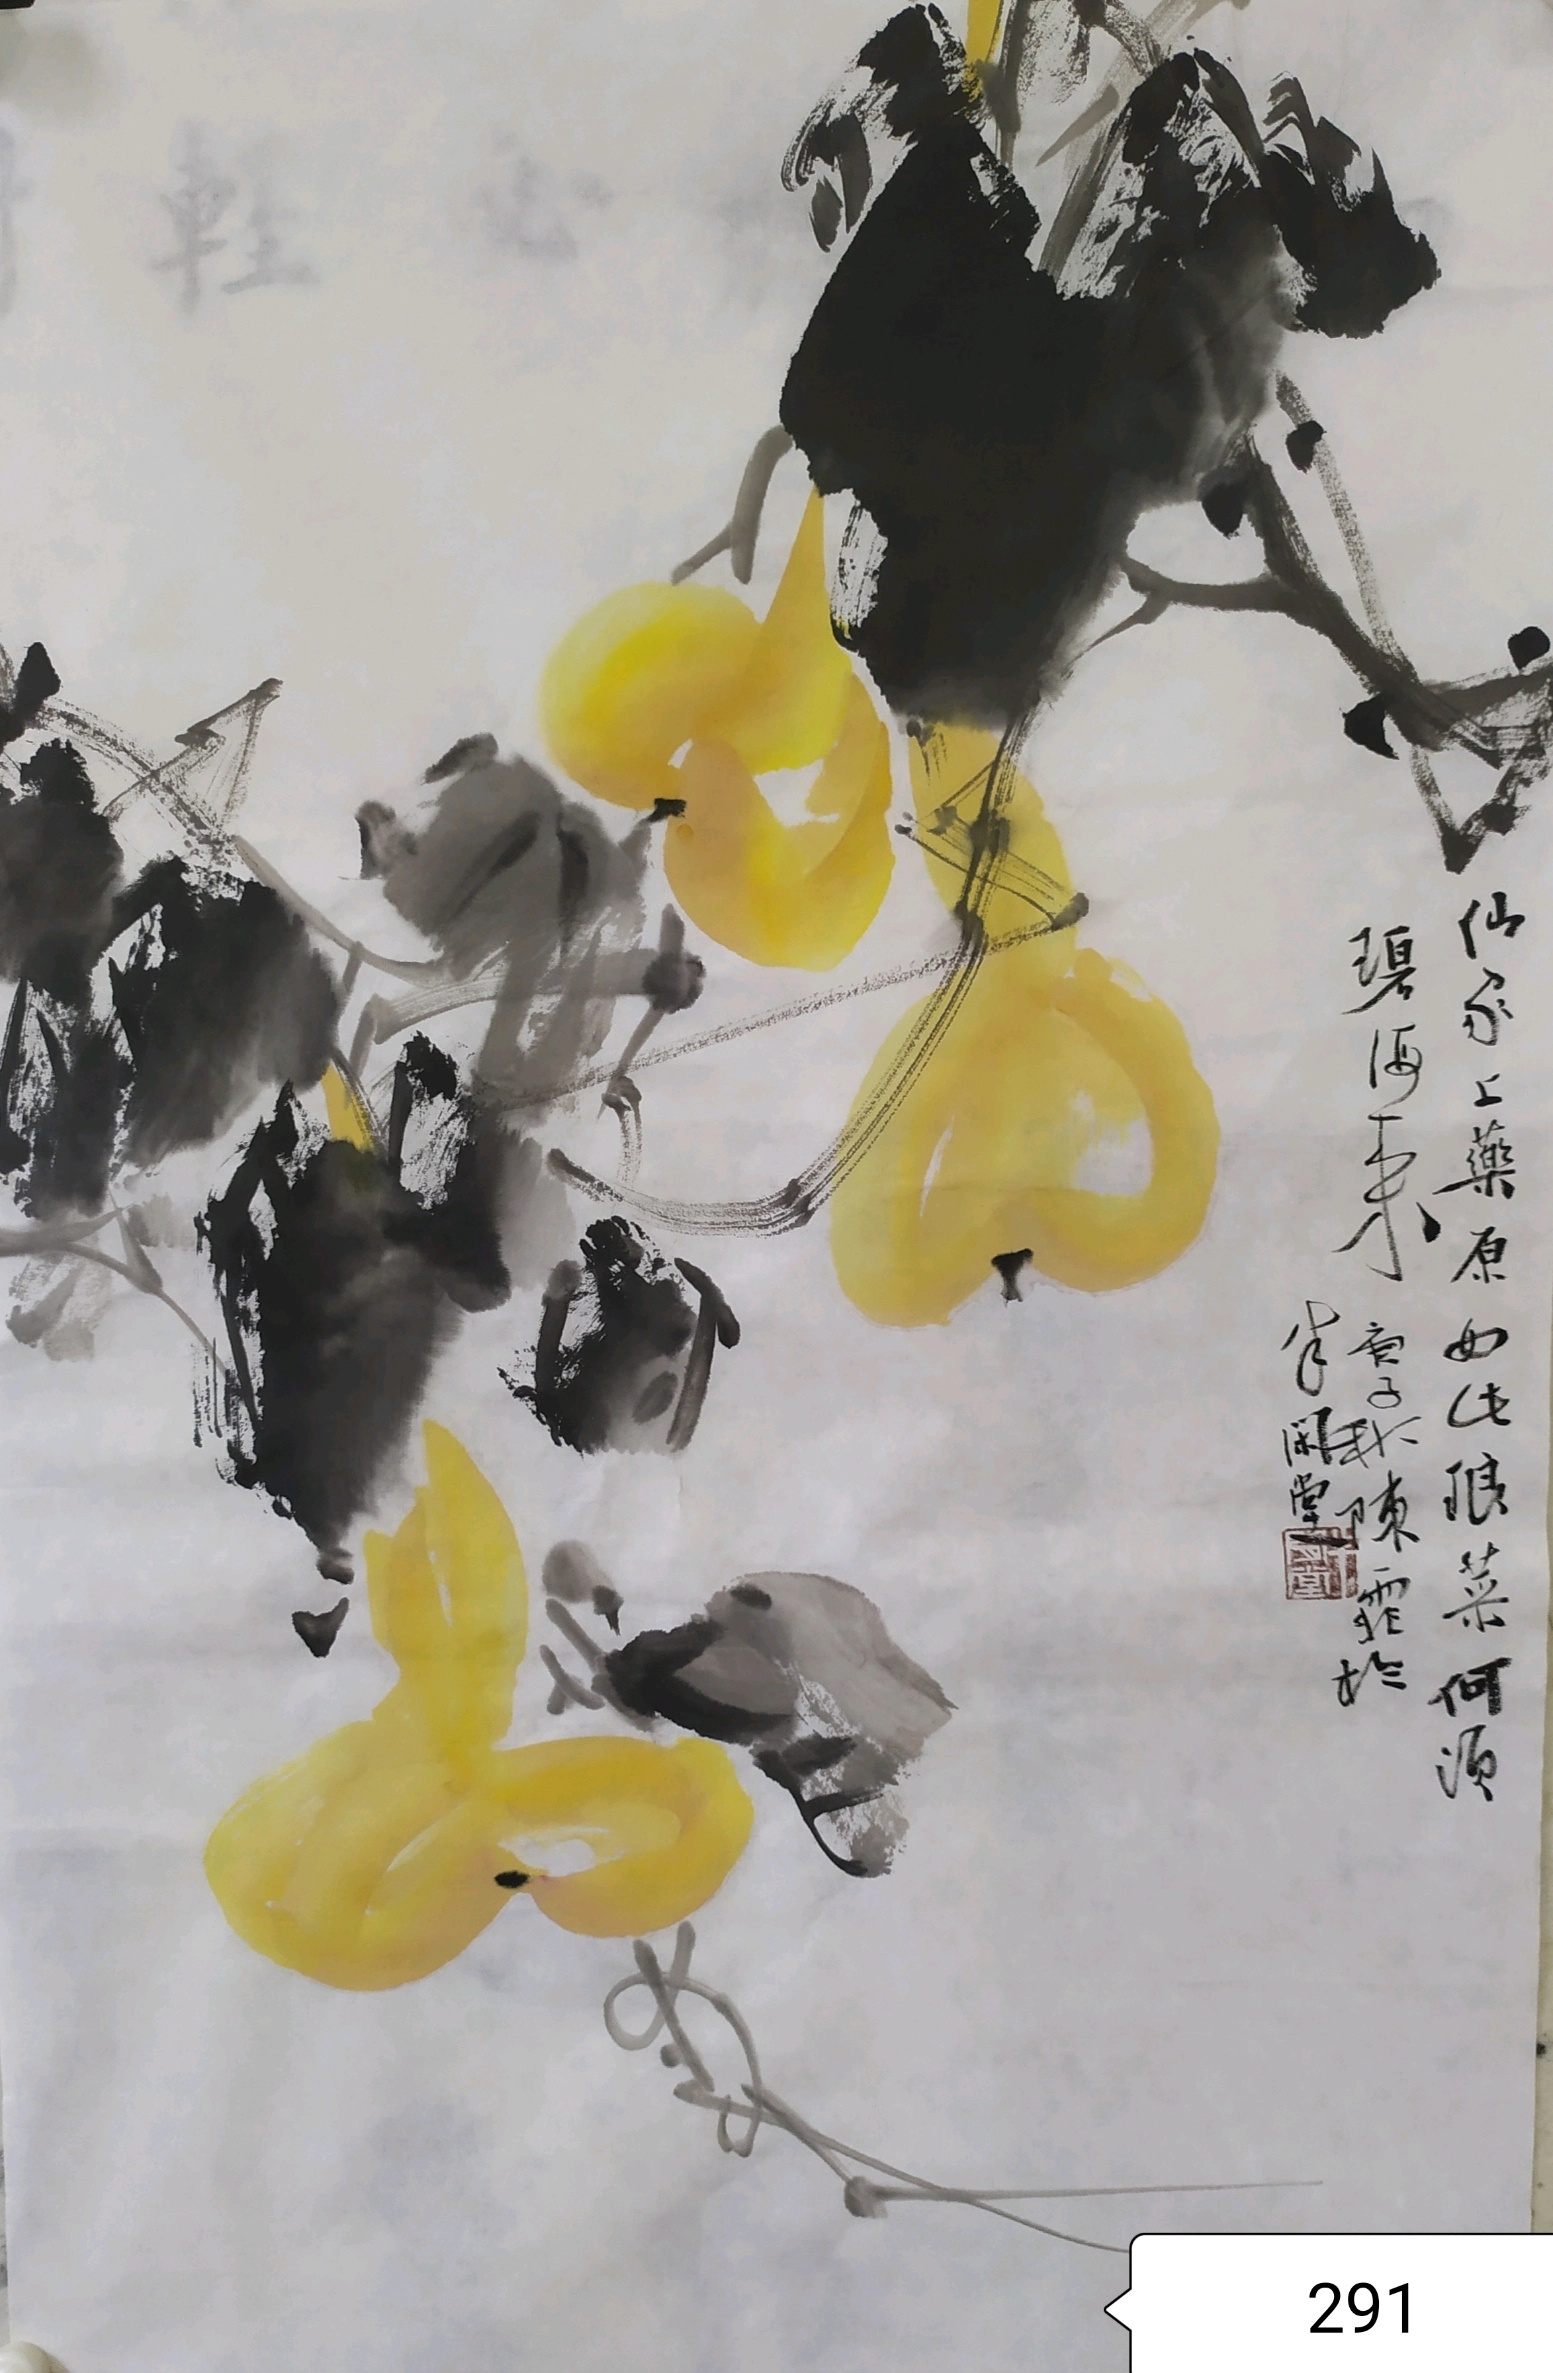 仙家上藥原如此琅菜何須
碧海求
庚子秋陳霏於
半閑堂
輕
291